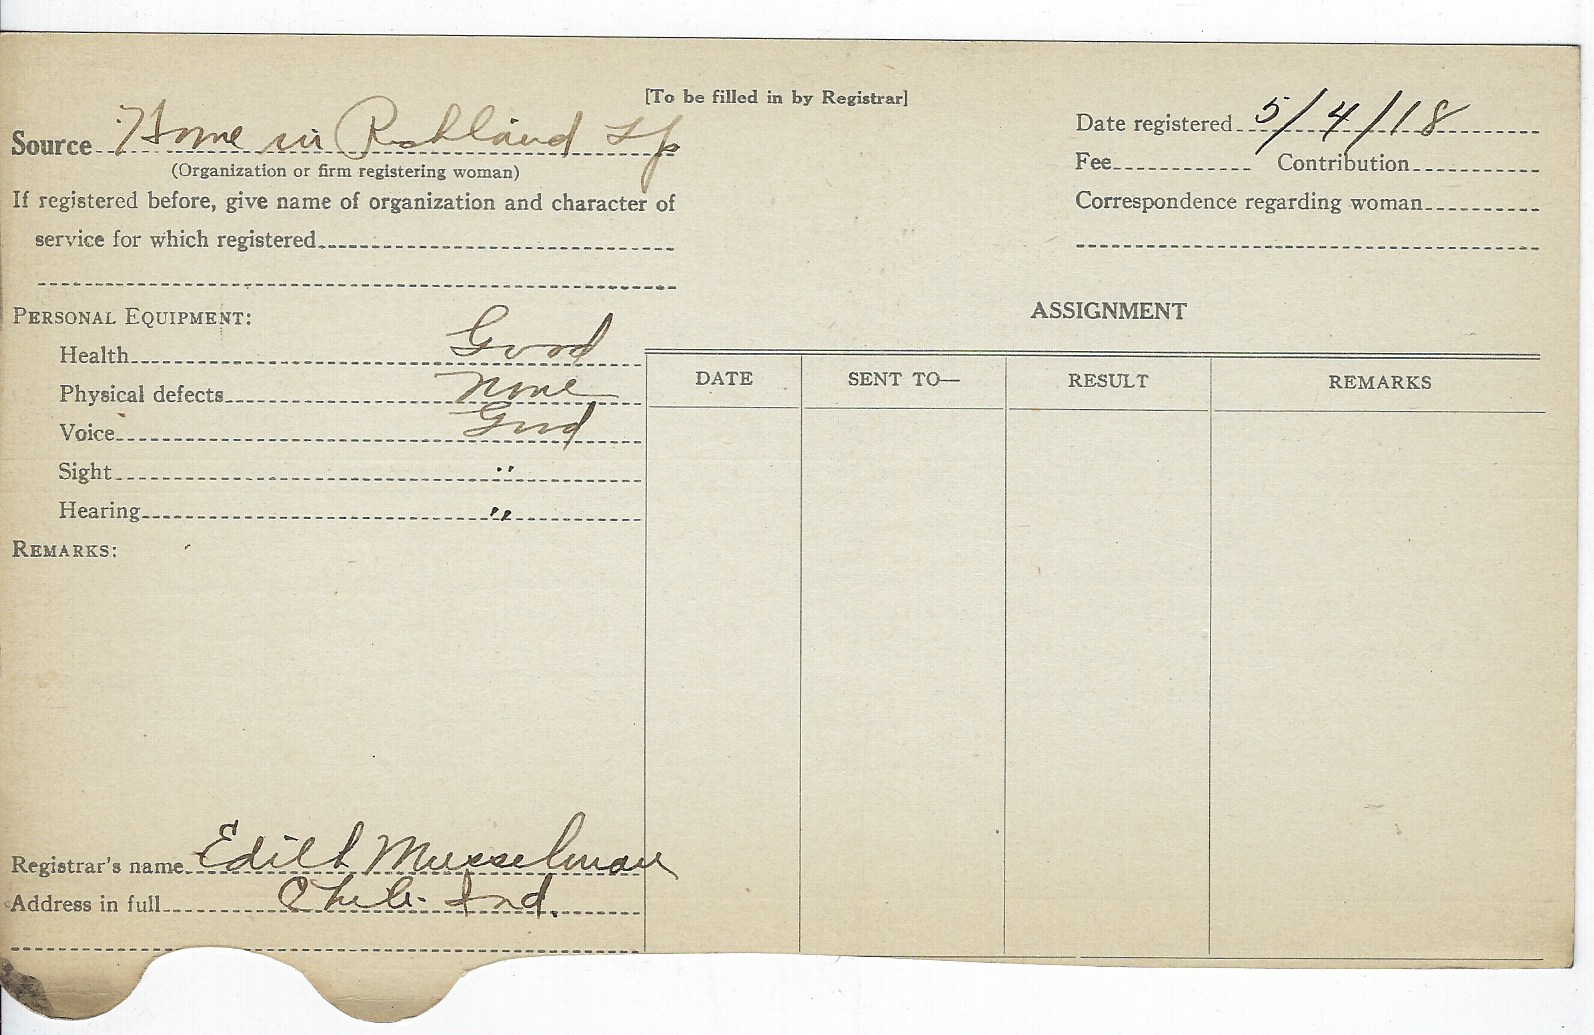 [To be filled in by Registrar]
Source Home in Richland Tp
(Organization or firm registering woman)
Date registered 5/4/18
Fee Contribution
If registered before, give name of organization and character of
service for which registered
Correspondence regarding woman
PERSONAL EQUIPMENT:
Health Good
Physical defects None
Voice Good
Sight "
Hearing "
REMARKS:
ASSIGNMENT
DATE SENT TO— RESULT REMARKS
Registrar's name Edith Musselman
Address in full Chili Ind.